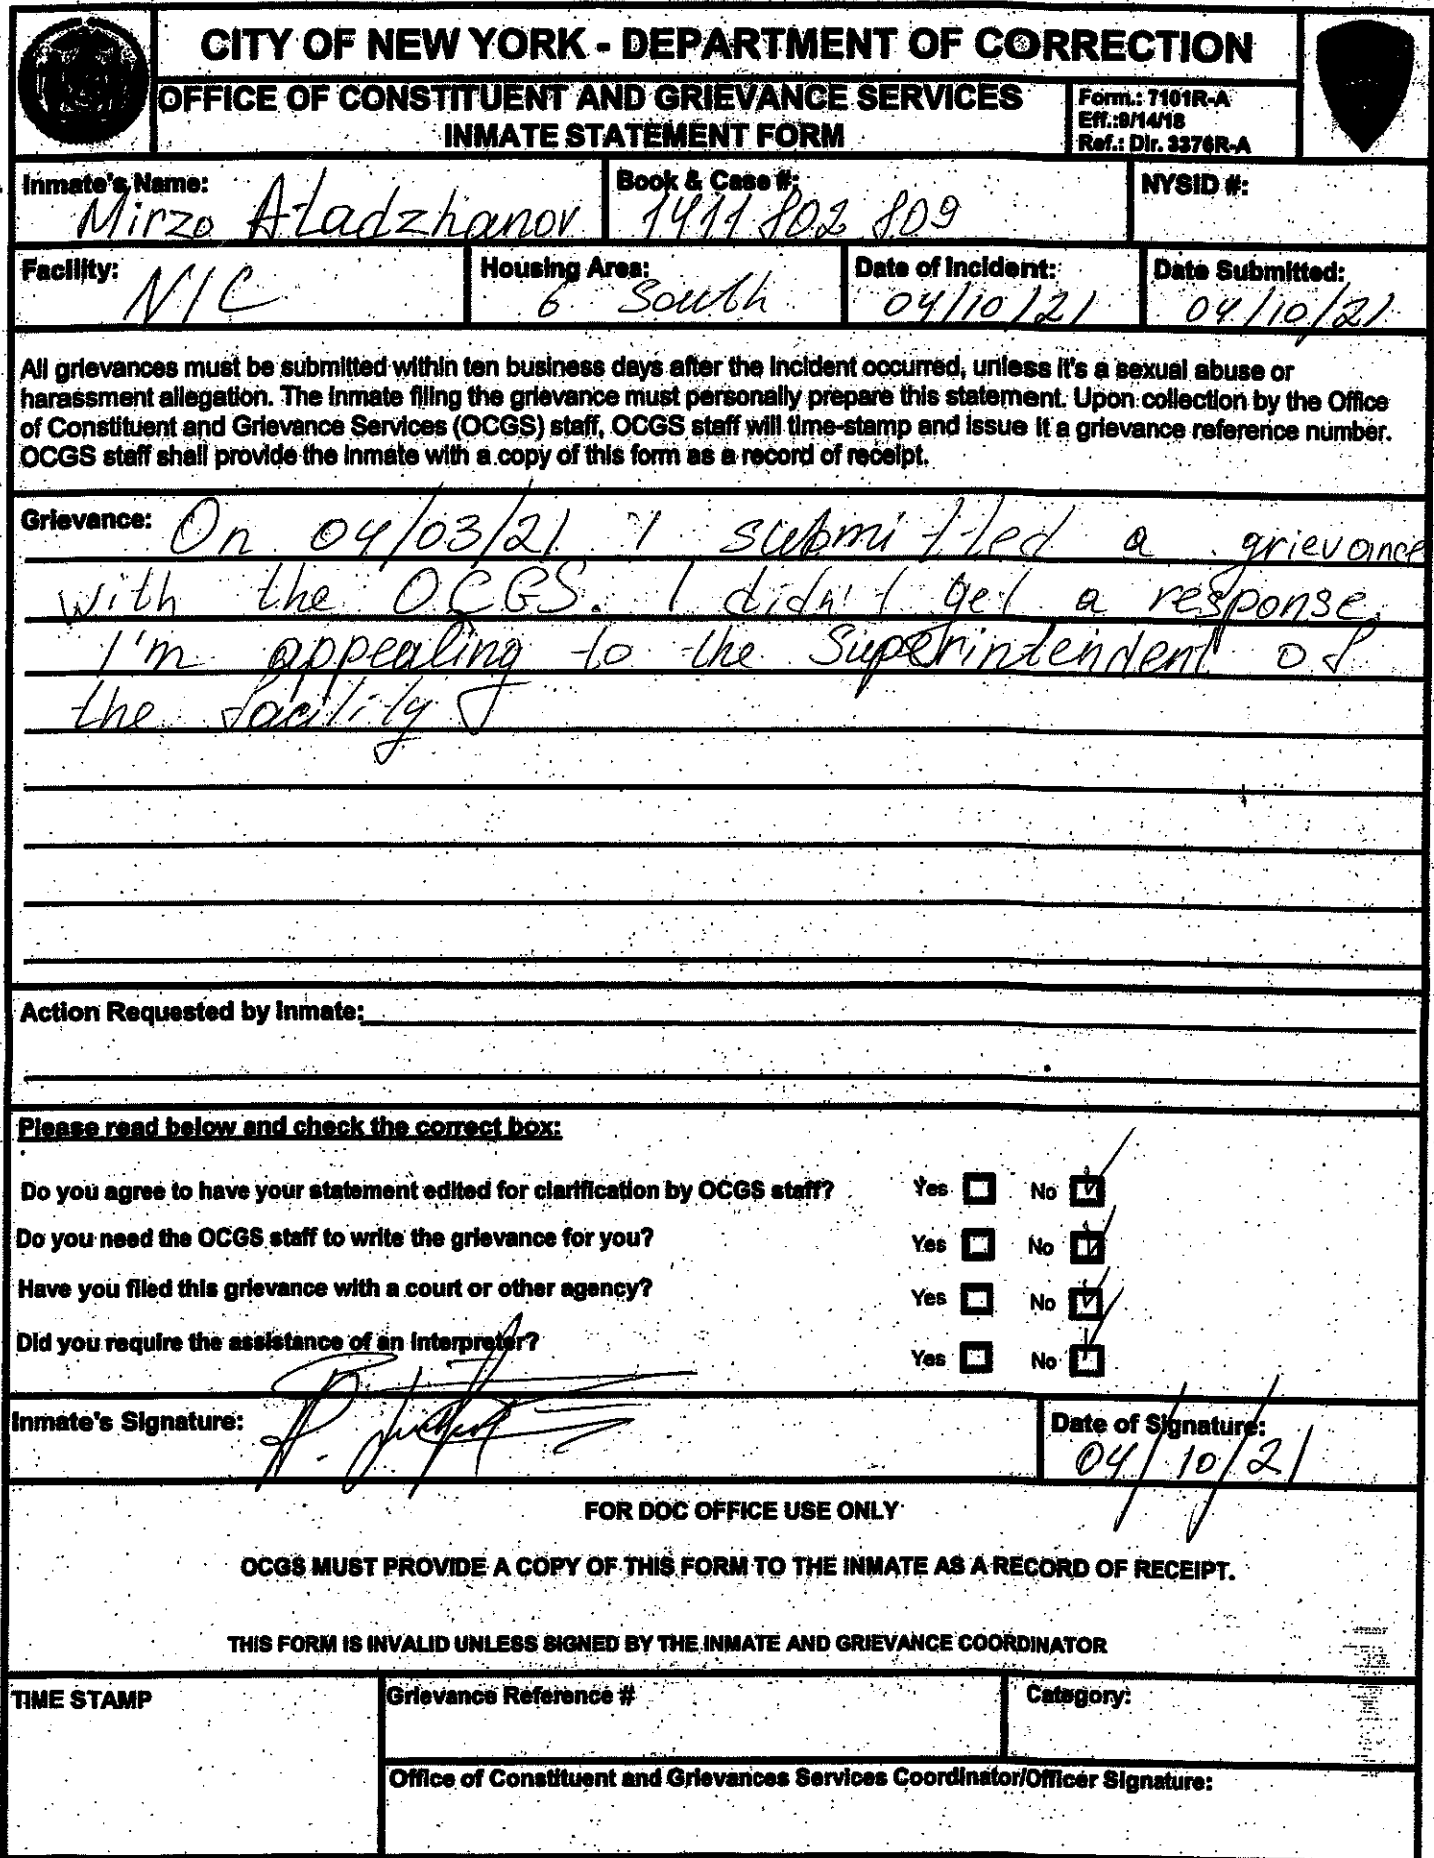 CITY OF NEW YORK - DEPARTMENT OF CORRECTION
OFFICE OF CONSTITUENT AND GRIEVANCE SERVICES
INMATE STATEMENT FORM
Form.: 7101R-A
Eff.:9/14/18
Ref.: Dir. 3376R-A
Inmate's Name:
Mirzo Atadzhanov
Book & Case #:
1411802809
NYSID #:
Facility:
NIC
Housing Area:
6 South
Date of Incident:
04/10/21
Date Submitted:
04/10/21
All grievances must be submitted within ten business days after the incident occurred, unless it's a sexual abuse or
harassment allegation. The inmate filing the grievance must personally prepare this statement. Upon collection by the Office
of Constituent and Grievance Services (OCGS) staff, OCGS staff will time-stamp and issue it a grievance reference number.
OCGS staff shall provide the inmate with a copy of this form as a record of receipt.
Grievance: On 04/03/21 I submitted a grievance
with the OCGS. I didn't get a response.
I'm appealing to the Superintendent of
the facility
Action Requested by Inmate:
Please read below and check the correct box:
Do you agree to have your statement edited for clarification by OCGS staff? Yes No
Do you need the OCGS staff to write the grievance for you? Yes No
Have you filed this grievance with a court or other agency? Yes No
Did you require the assistance of an interpreter? Yes No
Inmate's Signature:
Date of Signature:
04/10/21
FOR DOC OFFICE USE ONLY
OCGS MUST PROVIDE A COPY OF THIS FORM TO THE INMATE AS A RECORD OF RECEIPT.
THIS FORM IS INVALID UNLESS SIGNED BY THE INMATE AND GRIEVANCE COORDINATOR
TIME STAMP
Grievance Reference #
Category:
Office of Constituent and Grievances Services Coordinator/Officer Signature: